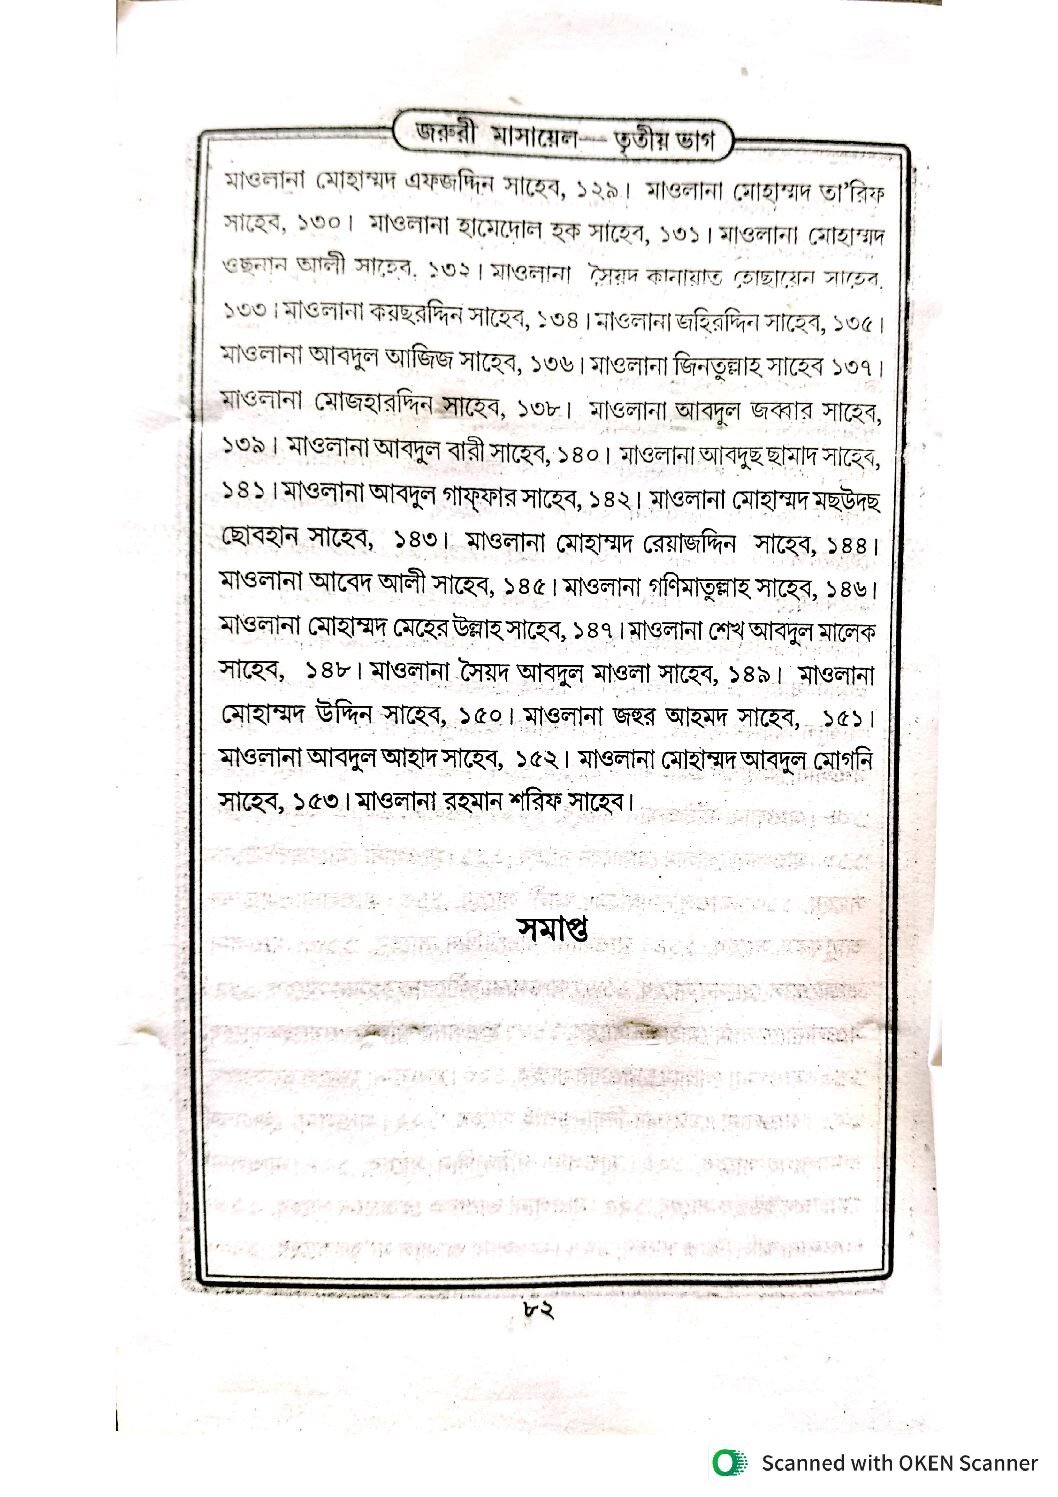 জরুরী মাসায়েল— তৃতীয় ভাগ
মাওলানা মোহাম্মদ এফজদ্দিন সাহেব, ১২৯। মাওলানা মোহাম্মদ তা’রিফ
সাহেব, ১৩০। মাওলানা হামেদোল হক সাহেব, ১৩১। মাওলানা মোহাম্মদ
ওছনান আলী সাহেব, ১৩২। মাওলানা সৈয়দ কানায়াত হোছায়েন সাহেব,
১৩৩। মাওলানা কয়ছরদ্দিন সাহেব, ১৩৪। মাওলানা জহিরদ্দিন সাহেব, ১৩৫।
মাওলানা আবদুল আজিজ সাহেব, ১৩৬। মাওলানা জিনতুল্লাহ সাহেব ১৩৭।
মাওলানা মোজহারদ্দিন সাহেব, ১৩৮। মাওলানা আবদুল জব্বার সাহেব,
১৩৯। মাওলানা আবদুল বারী সাহেব, ১৪০। মাওলানা আবদুছ ছামাদ সাহেব,
১৪১। মাওলানা আবদুল গাফ্ফার সাহেব, ১৪২। মাওলানা মোহাম্মদ মছউদছ
ছোবহান সাহেব, ১৪৩। মাওলানা মোহাম্মদ রেয়াজদ্দিন সাহেব, ১৪৪।
মাওলানা আবেদ আলী সাহেব, ১৪৫। মাওলানা গণিমাতুল্লাহ সাহেব, ১৪৬।
মাওলানা মোহাম্মদ মেহের উল্লাহ সাহেব, ১৪৭। মাওলানা শেখ আবদুল মালেক
সাহেব, ১৪৮। মাওলানা সৈয়দ আবদুল মাওলা সাহেব, ১৪৯। মাওলানা
মোহাম্মদ উদ্দিন সাহেব, ১৫০। মাওলানা জহুর আহমদ সাহেব, ১৫১।
মাওলানা আবদুল আহাদ সাহেব, ১৫২। মাওলানা মোহাম্মদ আবদুল মোগনি
সাহেব, ১৫৩। মাওলানা রহমান শরিফ সাহেব।
সমাপ্ত
৮২
Scanned with OKEN Scanner